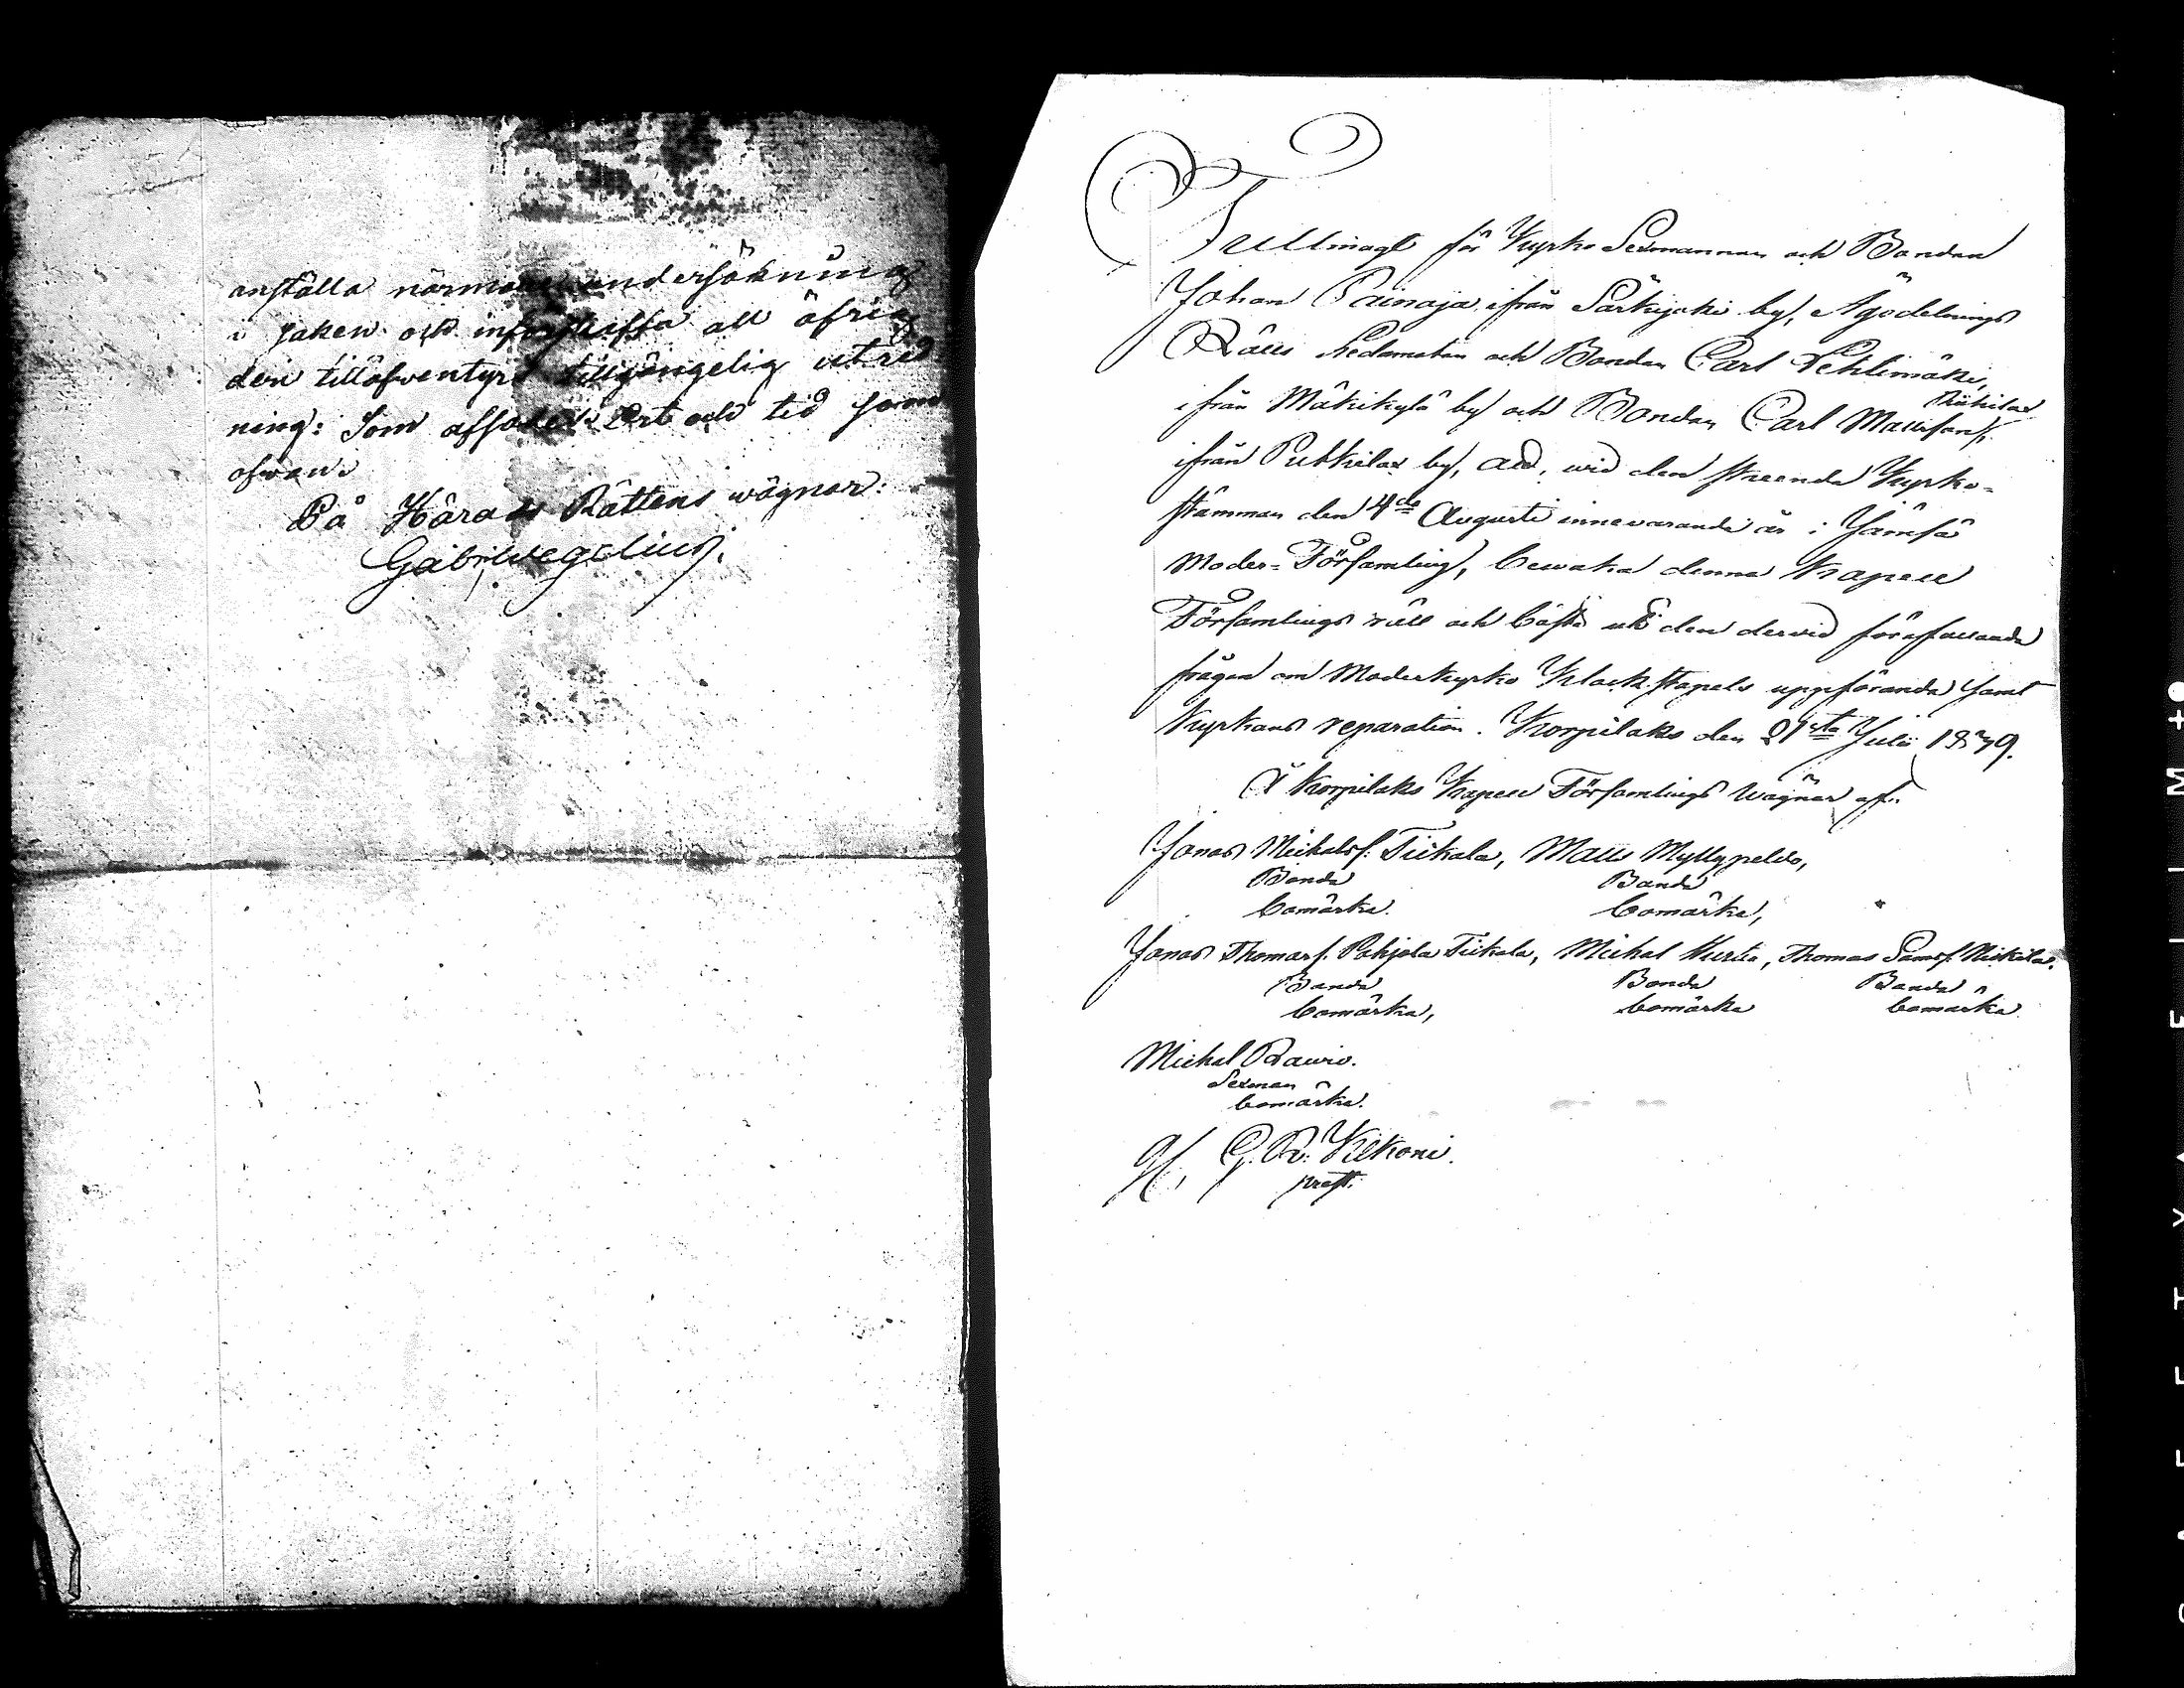 anställa närmare undersökning
i saken och införskaffa all öfrig
den tilläfventyrs tillgängelig utred-
ning: Som afsades Ort och tid som
ofwan.
På Härads Rättens wägnar:
Gabr Wegelius.
Fullmagt för Kyrko Sexmannen och Bonden
Johan Painaja ifrån Särkijoki by, Ägodelnings
Rätts Ledamoten och Bonden Carl Pehlimäki,
ifrån Mäkikylä by och Bonden Carl Mattsson
ifrån Putkilax by, att, wid den skeende Kyrko-
stämman den 4de Augusti innevarande år i Jämsä
Moder-Församling, bewaka denna Kapell
Församlings rätt och bästa uti den dervid förefallande
frågan om Moderkyrko Klockstapels uppförande samt
Kyrkans reparation. Korpilaks den 21sta Julii 1839.
Å Korpilaks Kapell Församlings Wägnar af:
Jonas Michelsf. Tiikala, Matts Myllypeldo,
Bonde Bonde
bomärke. bomärke,
Jonas Thomasf. Pohjola Tiikala, Michel Hurtia, Thomas Samsf. Niskila.
Bonde Bonde Bonde
bomärke, bomärke bomärke.
Michel Rauvio.
Sexman
bomärke.
G. R. Kilkoni.
prest.
M to
F I L